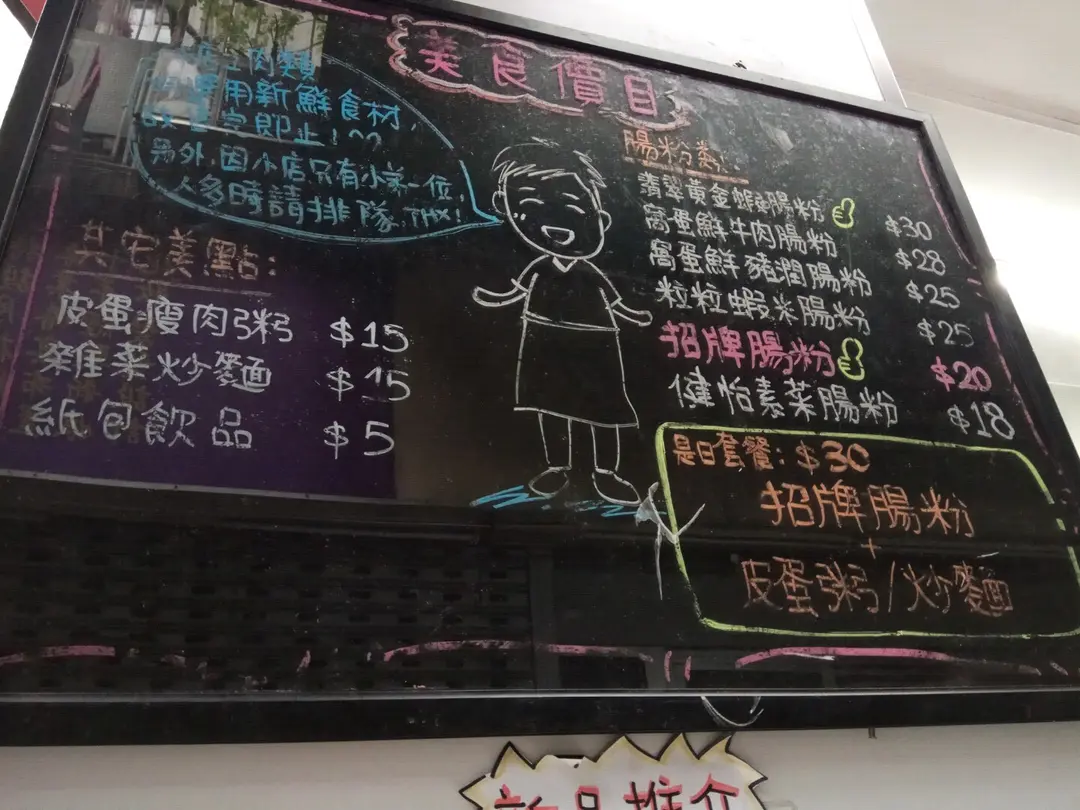 美食價目
肉類
用新鮮食材,
即止!^^
另外,因小店只有小弟一位,
人多時請排隊.THX!
其它美點:
皮蛋瘦肉粥 $15
雜菜炒麵 $15
紙包飲品 $5
腸粉類:
翡翠黃金蝦腸粉 $30
窩蛋鮮牛肉腸粉 $28
窩蛋鮮豬潤腸粉 $25
粒粒蝦米腸粉 $25
招牌腸粉 $20
健怡素菜腸粉 $18
是日套餐: $30
招牌腸粉
+
皮蛋粥/炒麵
新品推介